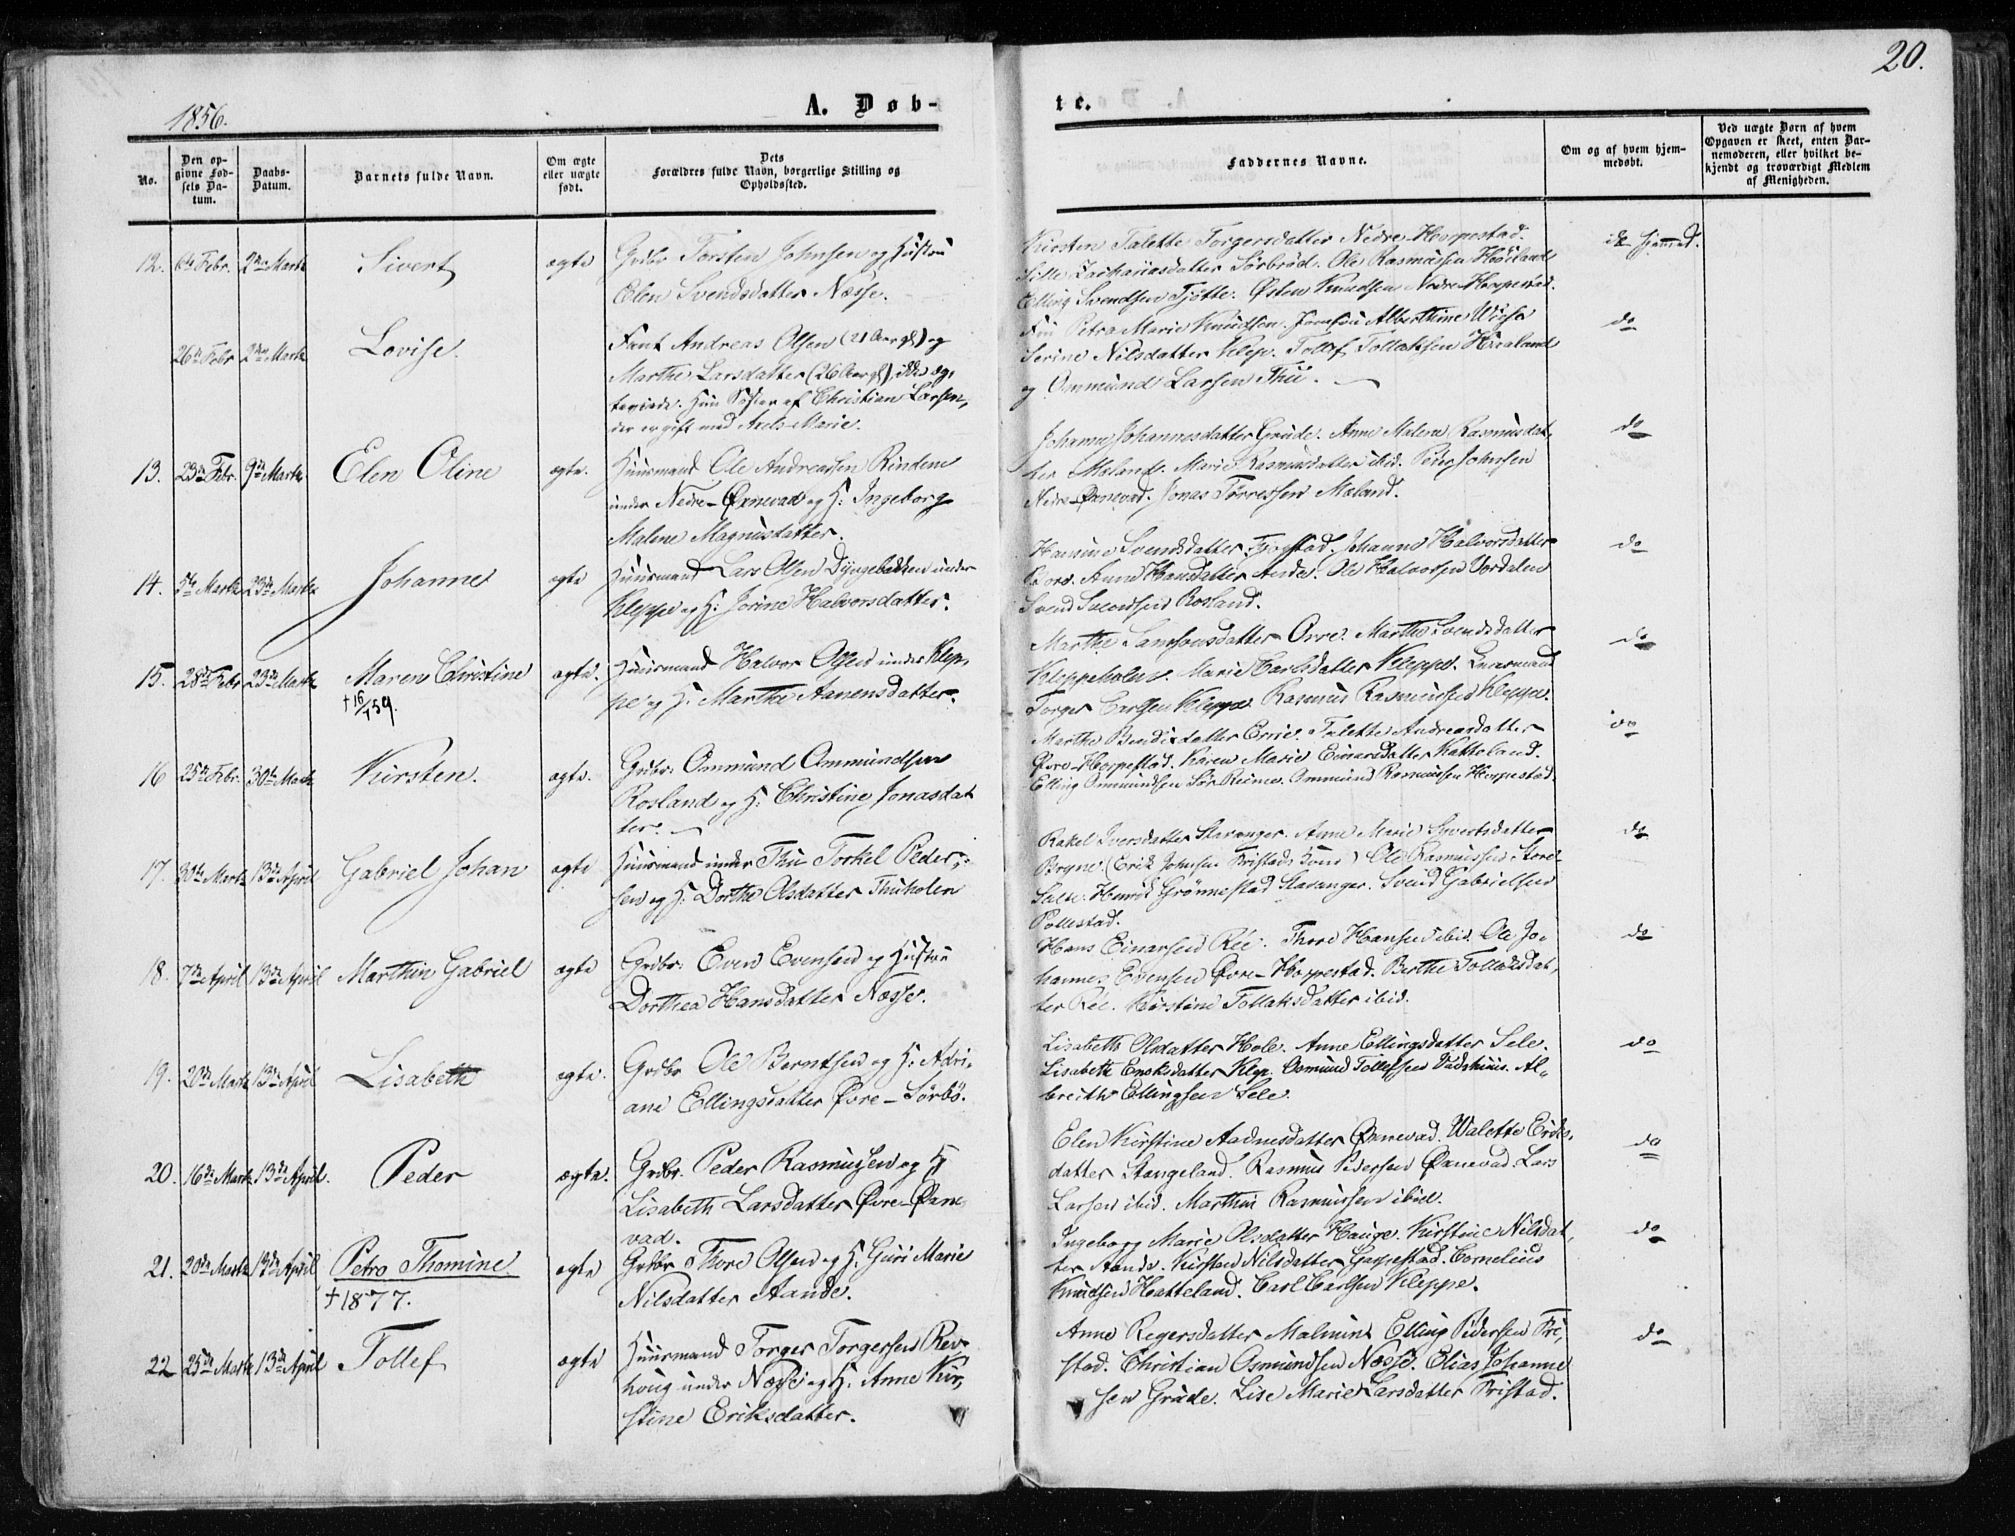 20.
1856.
A. Døb-
te.
No.
Den opgivne Fødsels Datum.
Daabs-Datum.
Barnets fulde Navn.
Om ægte eller uægte født.
Dets Forældres fulde Navn, borgerlige Stilling og Opholdssted.
Faddernes Navne.
Om og af hvem hjemmedøbt.
Ved uægte Børn af hvem Opgaven er skeet, enten Barnemoderen, eller hvilket bekjendt og troværdigt Medlem af Menigheden.
12. 6te Febr. 2den Marts Sivert ægte Grdbr Torsten Johnsen og Hustru
Elen Svendsdatter Næsse.
Kirsten Talette Torgersdatter Nedre-Horpestad.
Sille Zachariasdatter Sørbrød. Ole Rasmussen Høiland
Elling Svendsen Tjøtte. Østen Knudsen Nedre-Horpestad.
26de Febr 2den Marts Lovise.
Fant Andreas Olsen (21 Aar gl) og
Marthe Larsdatter (26 Aar gl), ikke æg-
teviede. Hun Søster af Christian Larsen,
der er gift med Axels-Marie.
Petra Marie Knudsen. Jomfru Alberthine
Serine Nilsdatter Klep. Tollef Tollaksen Haaland
og Ommund Larsen Thu.
do
13. 23de Febr. 9de Marts Elen Oline ægte. Huusmand Ole Andreassen Rindene
under Nedre-Øxnevad og H: Ingeborg
Malene Magnusdatter.
Johanne Johannesdatter Grude. Anne Malene Rasmusdat-
ter Mæland. Marie Rasmusdatter ibid. Peder Johnsen
Nedre-Øxnevad. Jonas Tørressen Mæland.
do
14. 5te Marts 23de Marts Johanne ægte Huusmand Lars Olsen Dyngebakken under
Kleppe og H: Jorine Halvorsdatter.
Svendsdatter Johanne Halvorsdatter
Anne Hansdatter Ole Halvorsen
Svend Rosland.
do
15. 28de Febr 23de Marts Maren Christine ægte. Huusmand Halvor Olsen under Klep-
pe og H: Marthe Aanensdatter.
†16/1 59.
Marthe Samsonsdatter Orre. Marthe Svendsdatter
Kleppeholen. Marie Carlsdatter Kleppe.
Torger Carlsen Kleppe Rasmus Rasmussen Kleppe.
do
16 25de Febr. 30te Marts Kirsten. ægte. Grdbr: Ommund Ommundsen
Rosland og H: Christine Jonasdat
ter.
Marthe Bendixdatter Talette Andreasdatter
Øvre-Horpestad. Karen Marie Einarsdatter Hatteland.
Elling Ommundsen Sør-Reime. Ommund Rasmussen Horpestad.
do
17. 30te Marts 13de April Gabriel Johan ægte Huusmand under Thu Torkel Peder-
sen og H: Dorthe Olsdatter Thuholen
Rakel Iversdatter Stavanger. Anne Marie Syvertsdatter
Bryne. (Erik Johnsen Fristad) Ole Rasmussen Store-
Salte. Henrik Grønnestad Stavanger. Svend Gabrielsen
Pollestad.
do
18. 7de April 13de April Marthin Gabriel ægte Grdbr: Even Evensen og Hustru
Dorthea Hansdatter Næsse.
Hans Einarsen Rée. Thore Hansen ibid. Ole Jo-
hannes Evensen Øvre-Horpestad. Berthe Tollaksdat-
ter Rée. Kirstine Tollaksdatter ibid.
do
19. 20de Marts 13de April Lisabeth ægte. Grdbr Ole Berntsen og H: Adri-
ane Ellingsdatter Øvre-Sørbø.
Lisabeth Olsdatter Hole. Anne Ellingsdatter Sele.
Lisabeth Enoksdatter Klep. Osmund Tollefsen Vadshuus. Al-
breith Ellingsen Sele.
do
20. 16de Marts 13de April. Peder ægte. Grdbr: Peder Rasmussen og H
Lisabeth Larsdatter Øvre-Øxne-
vad.
Elen Kirstine Aadnesdatter Øxnevad. Walette Eriks-
datter Stangeland. Rasmus Pedersen Øxnevad. Lars
Larsen ibid. Marthin Rasmussen ibid.
do
21. 20de Marts 13de April Petro Thomine. ægte Grdbr Thore Olsen og H: Guri Marie
Nilsdatter Aande.
†1877.
Ingeborg Marie Olsdatter Hauge. Kirstine Nilsdat-
ter Aande. Kirsten Nilsdatter Gruppestad. Cornelius
Knudsen Hatteland. Carl Carlsen Kleppe.
do
22 25de Marts 13de April Tollef ægte Huusmand Torger Torgersen Rev-
houg under Næsse og H: Anne Kir-
stine Eriksdatter.
Anne Regersdatter Malmin Elling Pedersen Fri-
stad. Christian Osmundsen Næsse. Elias Johanne
sen Grude. Lise Marie Larsdatter Fristad.
do